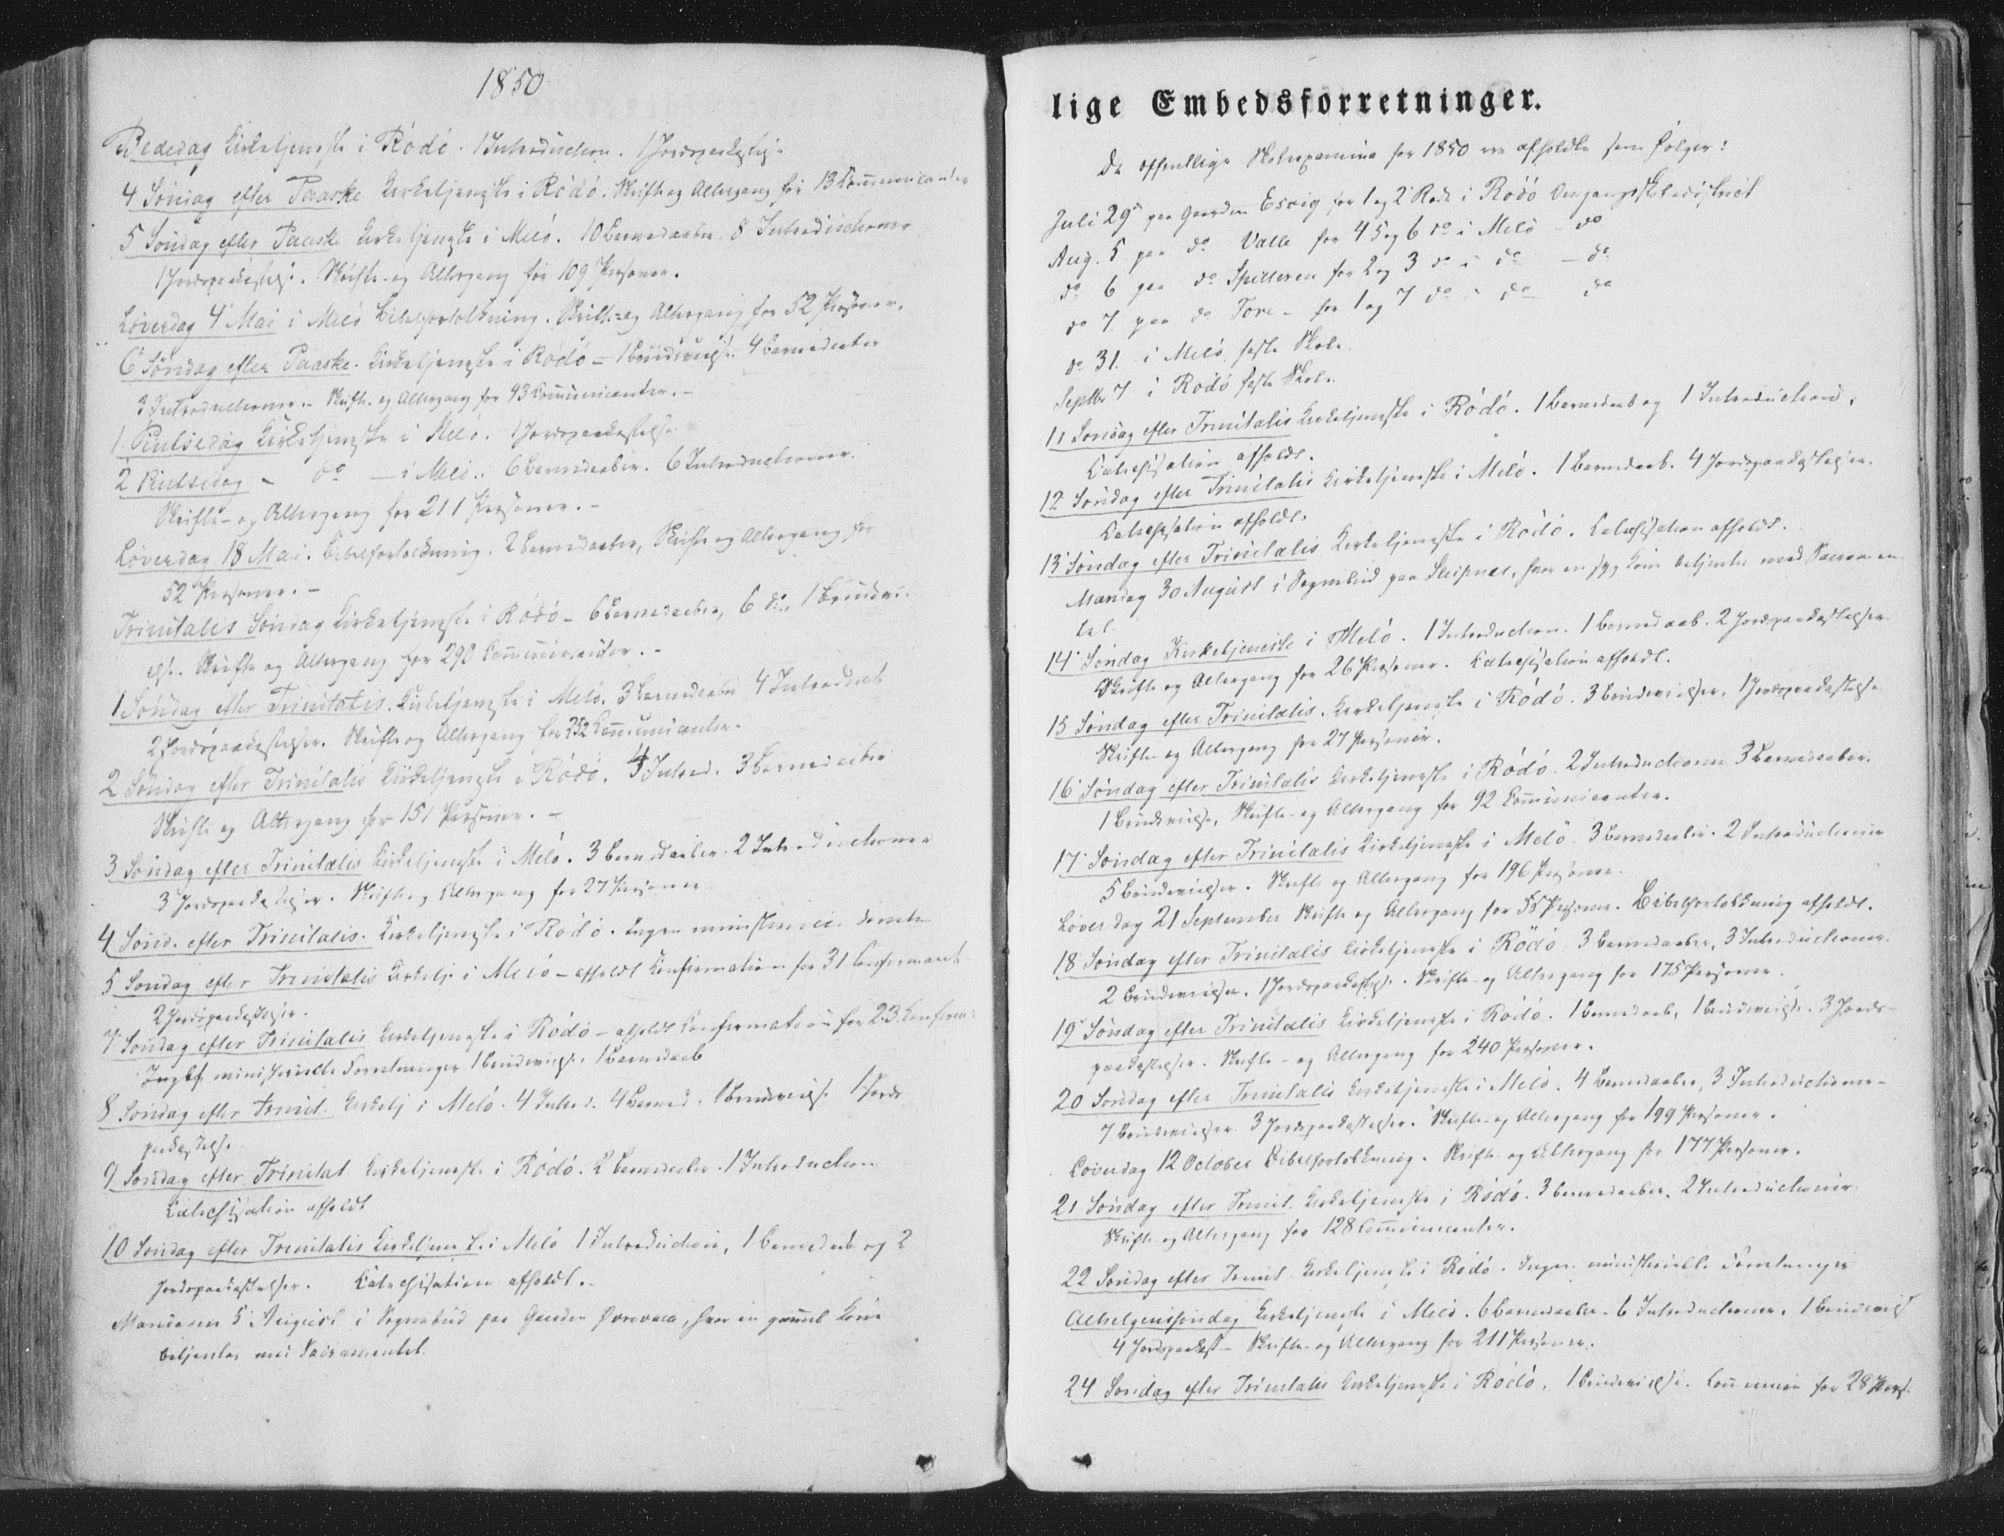 1850
Bededag Kirketjeneste i Rödö. 1 Introduction. 1 Jordpaakastelse
4 Söndag efter Paaske Kirketjeneste i Rödö. Skrifte og Altergang för 13 Communicanter
5 Söndag efter Paaske Kirketjeneste i Melö. 10 Barnedaabe 8 Introductioner
1 Jordpaakastelse. Skrifte- og Altergang för 109 Personer.
Löverdag 4 Mai i Melö Bibelfortolkning. Skrifte- og Altergang for 52 Personer.
6 Söndag efter Paaske. Kirketjeneste i Rödö - 1 Brudevielse. 4 Barnedaabe
3 Introductioner. - Skrifte- og Altergang for 93 Communicanter. -
1. Pintsedag Kirketjeneste i Melö. 1 Jordpaakastelse
2 Pintsedag - do - i Melö. 6 Barnedaabe. 6 Introductioner.
Skrifte- og Altergang for 211 Personer. -
Löverdag 18 Mai. Bibelfortolkning. 2 Barnedaabe, Skrifte og Altergang for
52 Personer. -
Trinitatis Söndag Kirketjeneste i Rödö - 6 Barnedaabe, 6 Introd., 1 Brudevi-
else. Skrifte og Altergang for 290 Communicanter. -
1 Söndag efter Trinitatis. Kirketjeneste i Melö. 3 Barnedaabe 4 Introduct
2 Jordpaakastelser. Skrifte og Altergang for 252 Communicanter.
2 Söndag efter Trinitatis Kirketjeneste i Rödö. 4 Introd. 3 Barnedaabe
Skrifte og Altergang for 151 Personer. -
3 Söndag efter Trinitatis Kirketjeneste i Melö. 3 Barnedaabe. 2 Introductioner
3 Jordpaakastelser. Skrifte og Altergang for 27 Personer
4 Sönd. efter Trinitatis. Kirketjeneste i Rödö. Ingen ministerielle
5 Söndag efter Trinitatis Kirketj. i Melö - afholdt Confirmation for 31 Confirmant
2 Jordpaakastelser.
7 Söndag efter Trinitatis Kirketjeneste i Rödö - afholdt Confirmation for 23 Confirm:
ministerielle Forretninger 1 Brudevielse. 1 Barnedaab
8 Söndag efter Trinit. Kirketj i Melö. 4 Introd. 4 Barned. 1 Brudevielse 1 Jords
paakastelse
9 Söndag efter Trinitat Kirketjeneste i Rödö. 2 Barnedaabe. 1 Introduction
Catechisation afholdt
10 Söndag efter Trinitatis Kirketjeneste i Melö 1 Introduction, 1 Barnedaab og 2
Jordpaakastelser. Catechisation afholdt.
Mandagen 5 August i Sognebud paa Gaarden, hvor en gammel Kone
betjentes med Sacramentet.
lige Embedsforretninger.
De offentlige Skoleexamina for 1850 ere afholdte som fölger:
Juli 29 paa Gaarden Esvig for 1 og 2 Rode i Rödö Omgangsskoledistrict
Aug. 5 paa do Valle for 4 5 og 6 do i Melö do
do 6 paa do Spilderen for 2 og 3 do i do - do
do 7 paa do Tore - for 1 og 7 do i do do
do 31. i Melö faste Skole.
Septbr 7 i Rödö faste Skole.
11 Söndag efter Trinitatis Kirketjeneste i Rödö. 1 Barnedaab og 1 Introduction.
Catechisation afholdt.
12 Söndag efter Trinitatis Kirketjeneste i Melö. 1 Barnedaab. 4 Jordpaakastelser.
Catechisation afholdt.
13 Söndag efter Trinitatis Kirketjeneste i Rödö. Catechisation afholdt.
Mandag 30 August i Sognebud paa Sleipnes, hvor en syg Kone betjentes med Sacramen-
tet.
14 Söndag Kirketjeneste i Melö. 1 Introduction. 1 Barnedaab. 2 Jordpaakastelser.
Skrifte og Altergang for 26 Personer. Catechisation afholdt.
15 Söndag efter Trinitatis. Kirketjeneste i Rödö. 3 Brudevielser, 1 Jordpaakastelse
Skrifte- og Altergang for 27 Personer.
16 Söndag efter Trinitatis Kirketjeneste i Rödö. 2 Introductioner 3 Barnedaabe.
1 Brudevielse, Skrifte- og Altergang for 92 Communicanter.
17 Söndag efter Trinitatis Kirketjeneste i Melö. 3 Barnedaabe. 2 Introductioner
5 Brudevielser. Skrifte og Altergang for 196 Personer.
Löverdag 21 September Skrifte og Altergang for 58 Personer. Bibelfortolkning afholdt.
18 Söndag efter Trinitatis Kirketjeneste i Rödö 3 Barnedaabe, 3 Introductioner.
2 Brudevielser. 1 Jordpaakastelse. Skrifte- og Altergang for 175 Personer.
19 Söndag efter Trinitatis Kirketjeneste i Rödö. 1 Barnedaab, 1 Brudevielse. 3 Jords-
paakastelser. Skrifte- og Altergang for 240 Personer.
20 Söndag efter Trinitatis Kirketjeneste i Melö. 4 Barnedaabe, 3 Introductioner-
7 Brudevielser 3 Jordpaakastelser. Skrifte- og Altergang for 199 Personer.
Löverdag 12 October Bibelfortolkning. Skrifte- og Altergang for 177 Personer.
21 Söndag efter Trinit. Kirketjeneste i Rödö. 3 Barnedaabe. 2 Introductioner
Skrifte- og Altergang for 128 Communicanter.
22 Söndag efter Trinit. Kirketjeneste i Rödö. Ingen ministerielle Forretninger
Alhelgensöndag Kirketjeneste i Melö. 6 Barnedaabe. 6 Introductioner. 1 Brudeviels
4 Jordpaakast- Skrifte- og Altergang for 211 Personer.
24 Söndag efter Trinitatis Kirketjeneste i Rödö. 1 Brudevielse. Communion for 28 Pers.